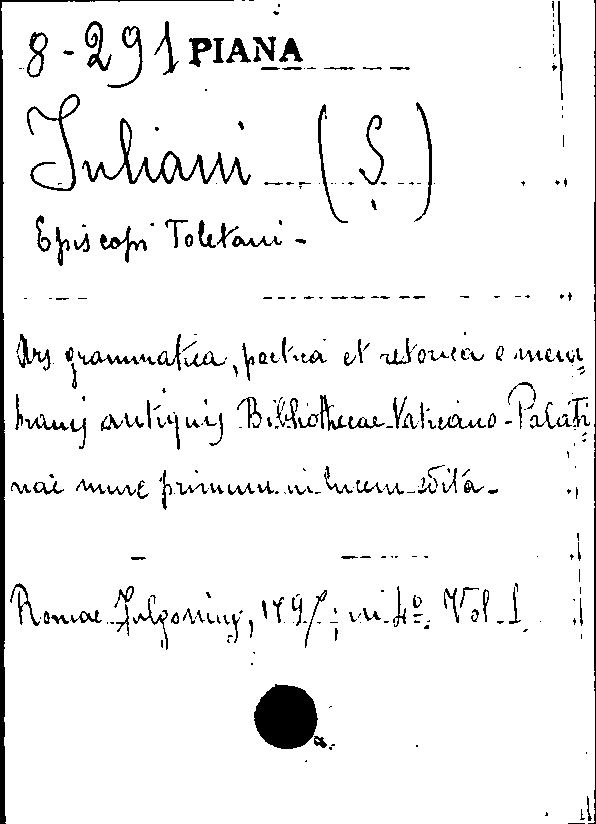 8-291 PIANA
Juliani (S.)
Episcopi Toletani -
Ars grammatica, poetica et retorica e mem=
branis antiquis Bibliothecae Vaticano-Palati=
nae nunc primum in lucem edita.
Romae Fulgonius, 1797; in 4º. Vol 1